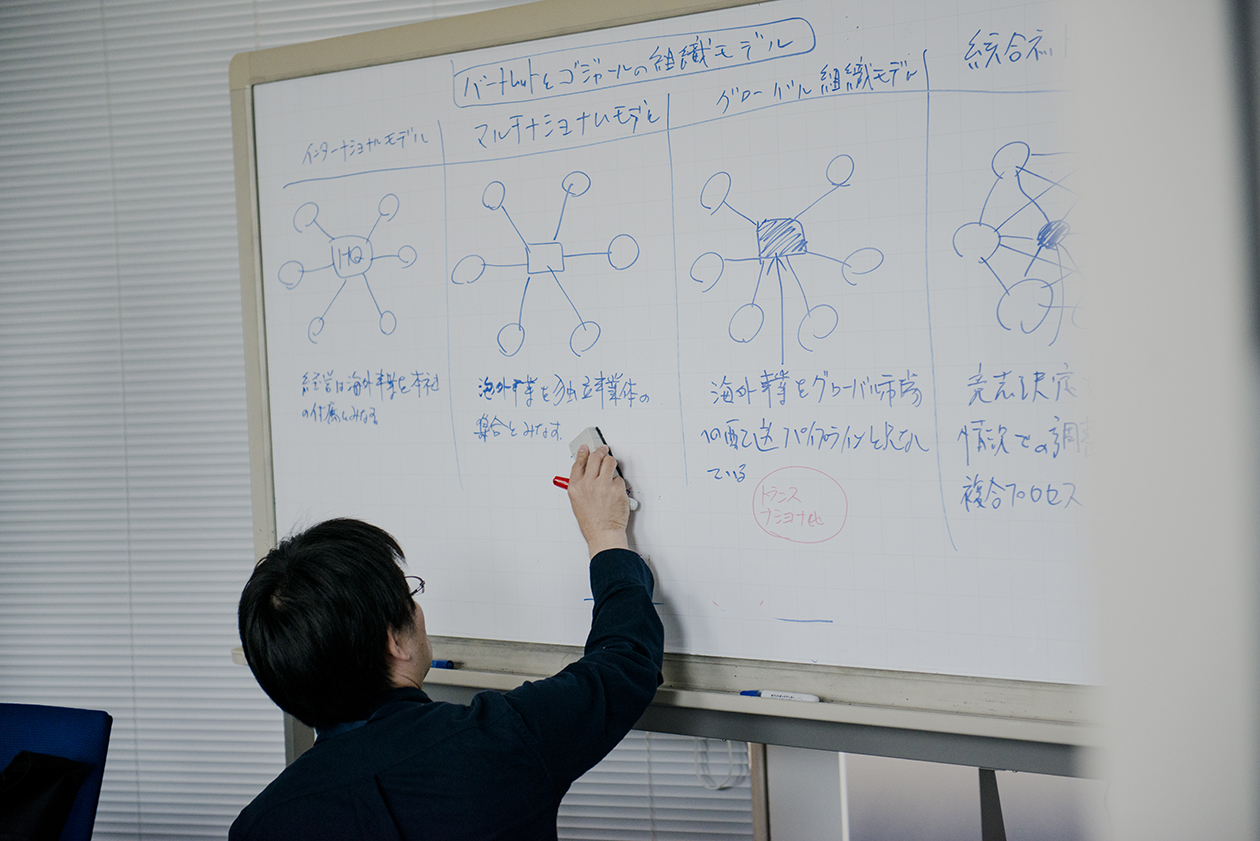 バートレットとゴシャールの組織モデル
インターナショナルモデル
マルチナショナルモデル
グローバル組織モデル
統合ネ
HQ
経営は海外事業を本社
の付属とみなす
海外事業を独立事業体の
集合とみなす
海外事業をグローバル市場
への配送パイプラインと見なし
ている
トランス
ナショナル
意志決定
情況での調整
複合プロセス